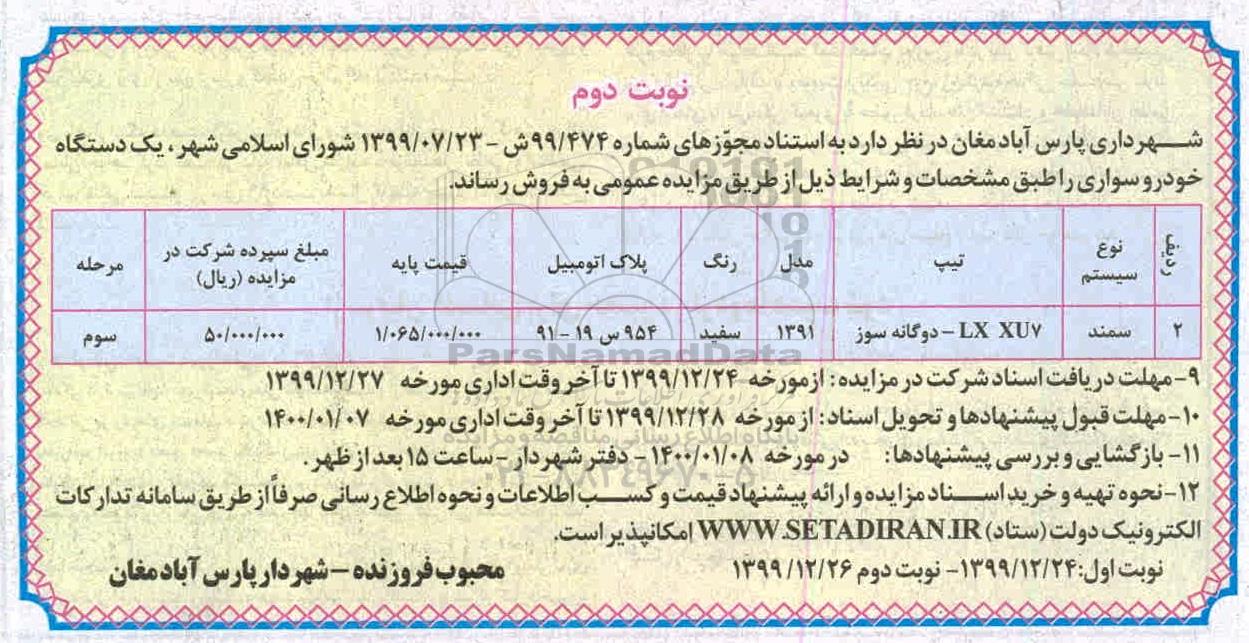 نوبت دوم
شهرداری پارس آباد مغان در نظر دارد به استناد مجوّزهای شماره ۹۹/۴۷۴ش - ۱۳۹۹/۰۷/۲۳ شورای اسلامی شهر، یک دستگاه
خودرو سواری را طبق مشخصات و شرایط ذیل از طریق مزایده عمومی به فروش رساند.
ردیف نوع سیستم تیپ مدل رنگ پلاک اتومبیل قیمت پایه مبلغ سپرده شرکت در مزایده (ریال) مرحله
۲ سمند LX XU۷ – دوگانه سوز ۱۳۹۱ سفید ۹۵۴ س ۱۹ - ۹۱ ۱/۰۶۵/۰۰۰/۰۰۰ ۵۰/۰۰۰/۰۰۰ سوم
۹- مهلت دریافت اسناد شرکت در مزایده: ازمورخه ۱۳۹۹/۱۲/۲۴ تا آخر وقت اداری مورخه ۱۳۹۹/۱۲/۲۷
۱۰- مهلت قبول پیشنهادها و تحویل اسناد: از مورخه ۱۳۹۹/۱۲/۲۸ تا آخر وقت اداری مورخه ۱۴۰۰/۰۱/۰۷
۱۱- بازگشایی و بررسی پیشنهادها: در مورخه ۱۴۰۰/۰۱/۰۸ - دفتر شهردار - ساعت ۱۵ بعد از ظهر.
۱۲- نحوه تهیه و خرید اسناد مزایده و ارائه پیشنهاد قیمت و کسب اطلاعات و نحوه اطلاع رسانی صرفاً از طریق سامانه تدارکات
الکترونیک دولت (ستاد) WWW.SETADIRAN.IR امکانپذیر است.
نوبت اول: ۱۳۹۹/۱۲/۲۴- نوبت دوم ۱۳۹۹/۱۲/۲۶
محبوب فروزنده – شهردار پارس آباد مغان
ParsNamadData
پایگاه اطلاع رسانی مناقصه و مزایده
۰۲۱-۸۸۳۴۹۶۷۰-۵